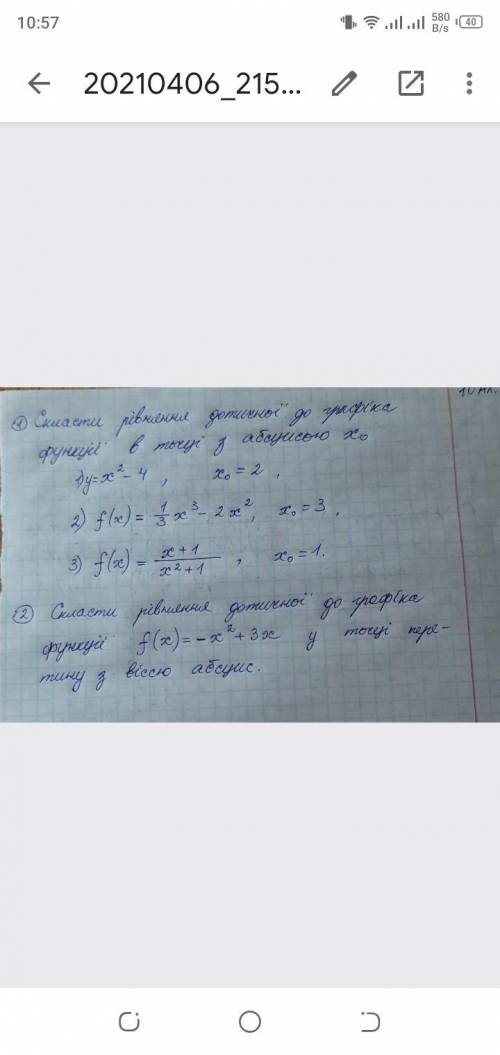 10:57
580
B/s
40
20210406_215...
10 кл.
① Скласти рівняння дотичної до графіка
функції в точці з абсцисою x₀
1) y = x² - 4 , x₀ = 2 ,
2) f(x) = 1/3 x³ - 2x², x₀ = 3 ,
3) f(x) = x+1 / x²+1 , x₀ = 1.
② Скласти рівняння дотичної до графіка
функції f(x) = -x² + 3x у точці пере-
тину з віссю абсцис.